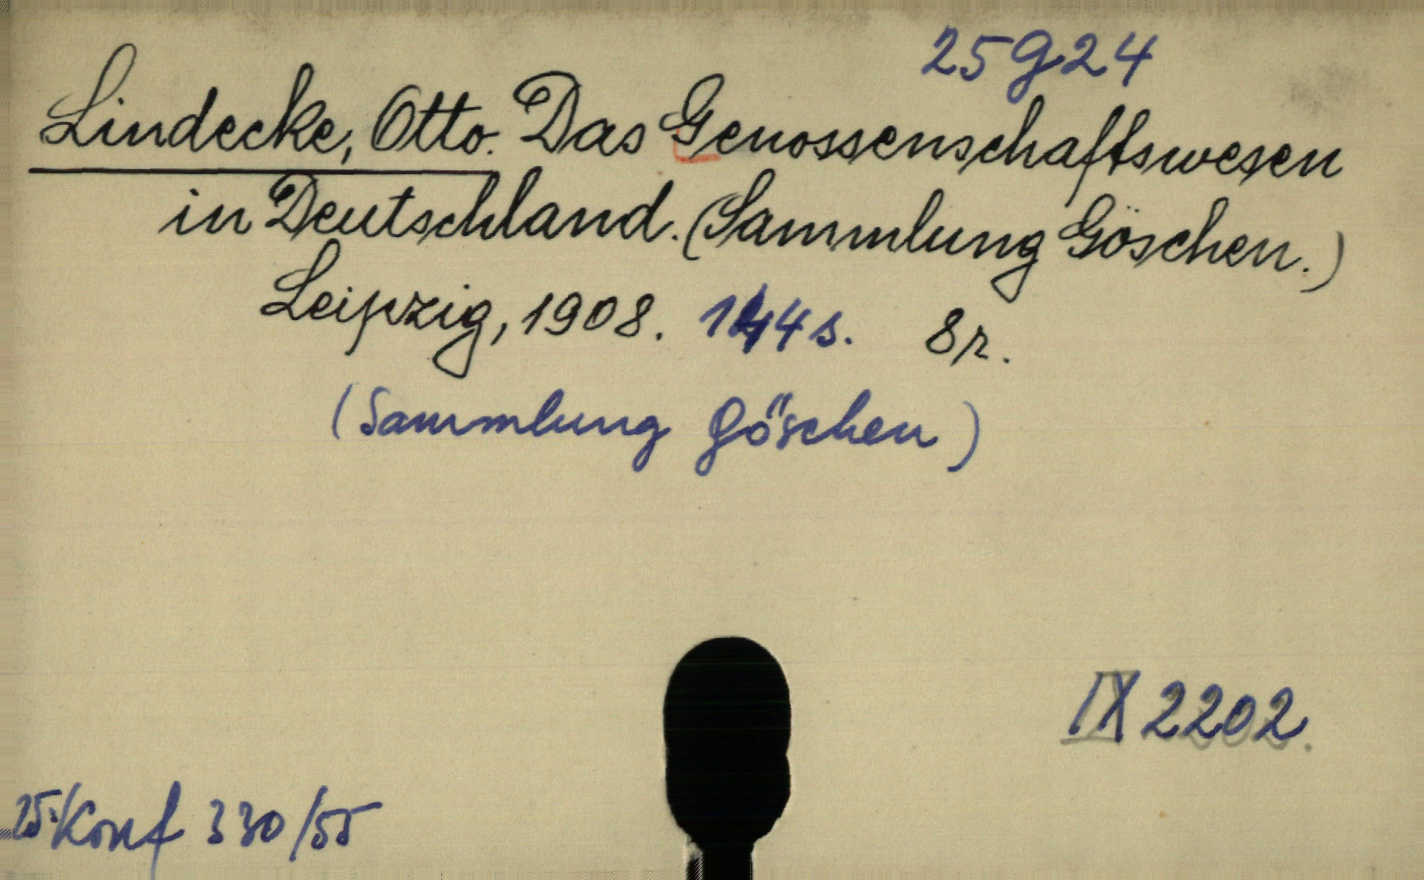 25g24
Lindecke, Otto. Das Genossenschaftswesen
in Deutschland. (Sammlung Göschen.)
Leipzig, 1908. 144 s. 8r.
(Sammlung Göschen)
IX 2202.
25. Konf 330/55